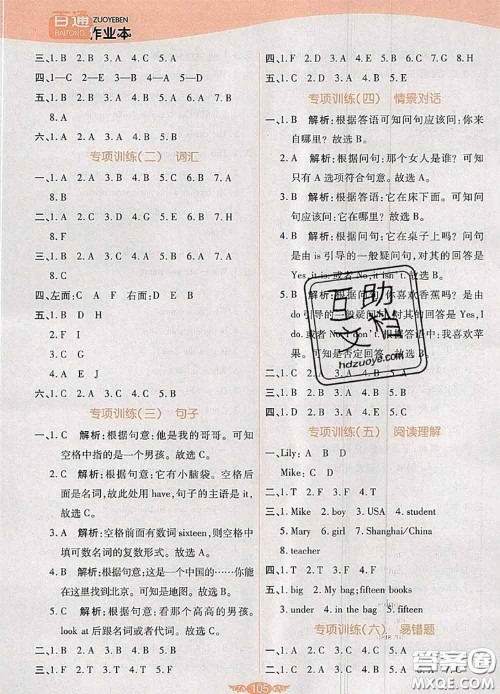 百通
BAITONG
ZUOYEBEN
作业本
三、1. B 2. B 3. A 4. A 5. B
四、1—C 2—E 3—B 4—D 5—A
五、1. B 2. A 3. C 4. D 5. E 6. F 7. G
8. A
六、1. A 2. B 3. A 4. B 5. B
专项训练(二) 词汇
一、1. B 2. C 3. A 4. C 5. B
二、1. B 2. A 3. A 4. B 5. B
三、1. G 2. C 3. E 4. D 5. A 6. B 7. H
8. F
四、左面: C A F 右面: D E
五、1. B D H
2. F I
3. G J
4. A E
5. C
六、1. C 2. A 3. D 4. E 5. B
专项训练(三) 句子
一、1. C 解析: 根据句意: 他是我的哥哥。可知
空格中指的是一个男孩。故选 C。
2. C 解析: 根据句意: 它有小脑袋。空格后
面是名词, 故此处应用 have, 句子的主语是 it,
故选 C。
3. A 解析: 空格前面有数词 sixteen, 则空格中
应填可数名词的复数形式。故选 A。
4. B 解析: 根据句意: 这是一个中国的……你能
在这里找到北京, 可知是地图。故选 B。
5. C 解析: 根据句意: 看那个高高的男孩。
look at 后跟表示人或物的名词。故选 C。
二、1. B 2. A 3. A 4. B 5. B
三、1. C 2. D 3. E 4. A 5. B
四、1. F 2. A 3. B 4. C 5. E 6. D 7. G 8. H
五、1. B 2. A 3. A 4. B 5. B
专项训练(四) 情景对话
一、1. B 解析: 根据答语可知问句应该问: 你来
自哪里? 故选 B。
2. A 解析: 根据问句: 那个女人是谁? 可知
只有 A 选项符合句意。故选 A。
3. B 解析: 根据答语: 它在床下面。可知问
句应该问: 它在哪里。故选 B。
4. B 解析: 根据问句: 它在桌子上吗? 问句
是 is 引导的一般疑问句, 对其的回答是
Yes, it is. 或者 No, it isn't. 可知选 B。
5. B 解析: 根据问句: 你喜欢香蕉吗? 问句
是 do 引导的一般疑问句, 对其的回答是 Yes, I
do. 或者 No, I don't. 根据答语: 我喜欢苹
果。可知是否定回答。故选 B。
二、1. B 2. A 3. A 4. B 5. B
三、1. C 2. D 3. A 4. E 5. B
专项训练(五) 阅读理解
一、Lily: A B D
Mike: C D
二、1. T 2. F 3. F 4. T 5. F
三、1. Mike 2. boy 3. USA 4. student
5. Mary 6. girl 7. Shanghai/China
8. teacher
四、1. T 2. T 3. F 4. T 5. F
五、1. big 2. My bag; fifteen books
3. under 4. in the bag 5. fifteen
六、1. F 2. F 3. T 4. F 5. T
专项训练(六) 易错题
一、1. C 2. B 3. B 4. A
二、1. B
105
互助文档
hdzuoye.com
答案圈
MXQE.COM